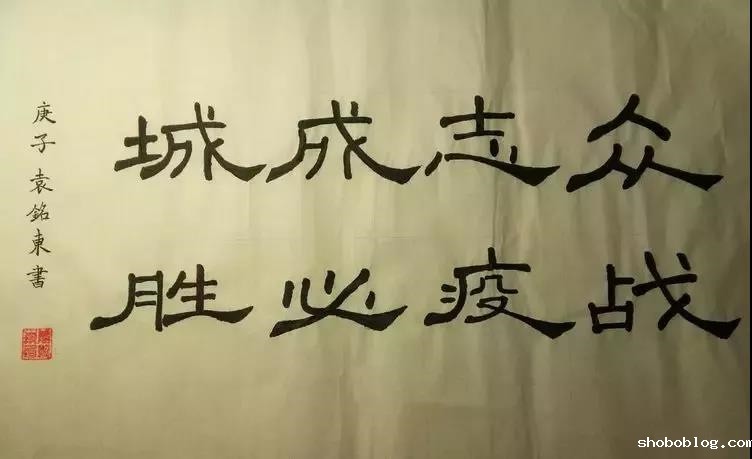 众志成城
战疫必胜
庚子 袁銘東書
shoboblog.com